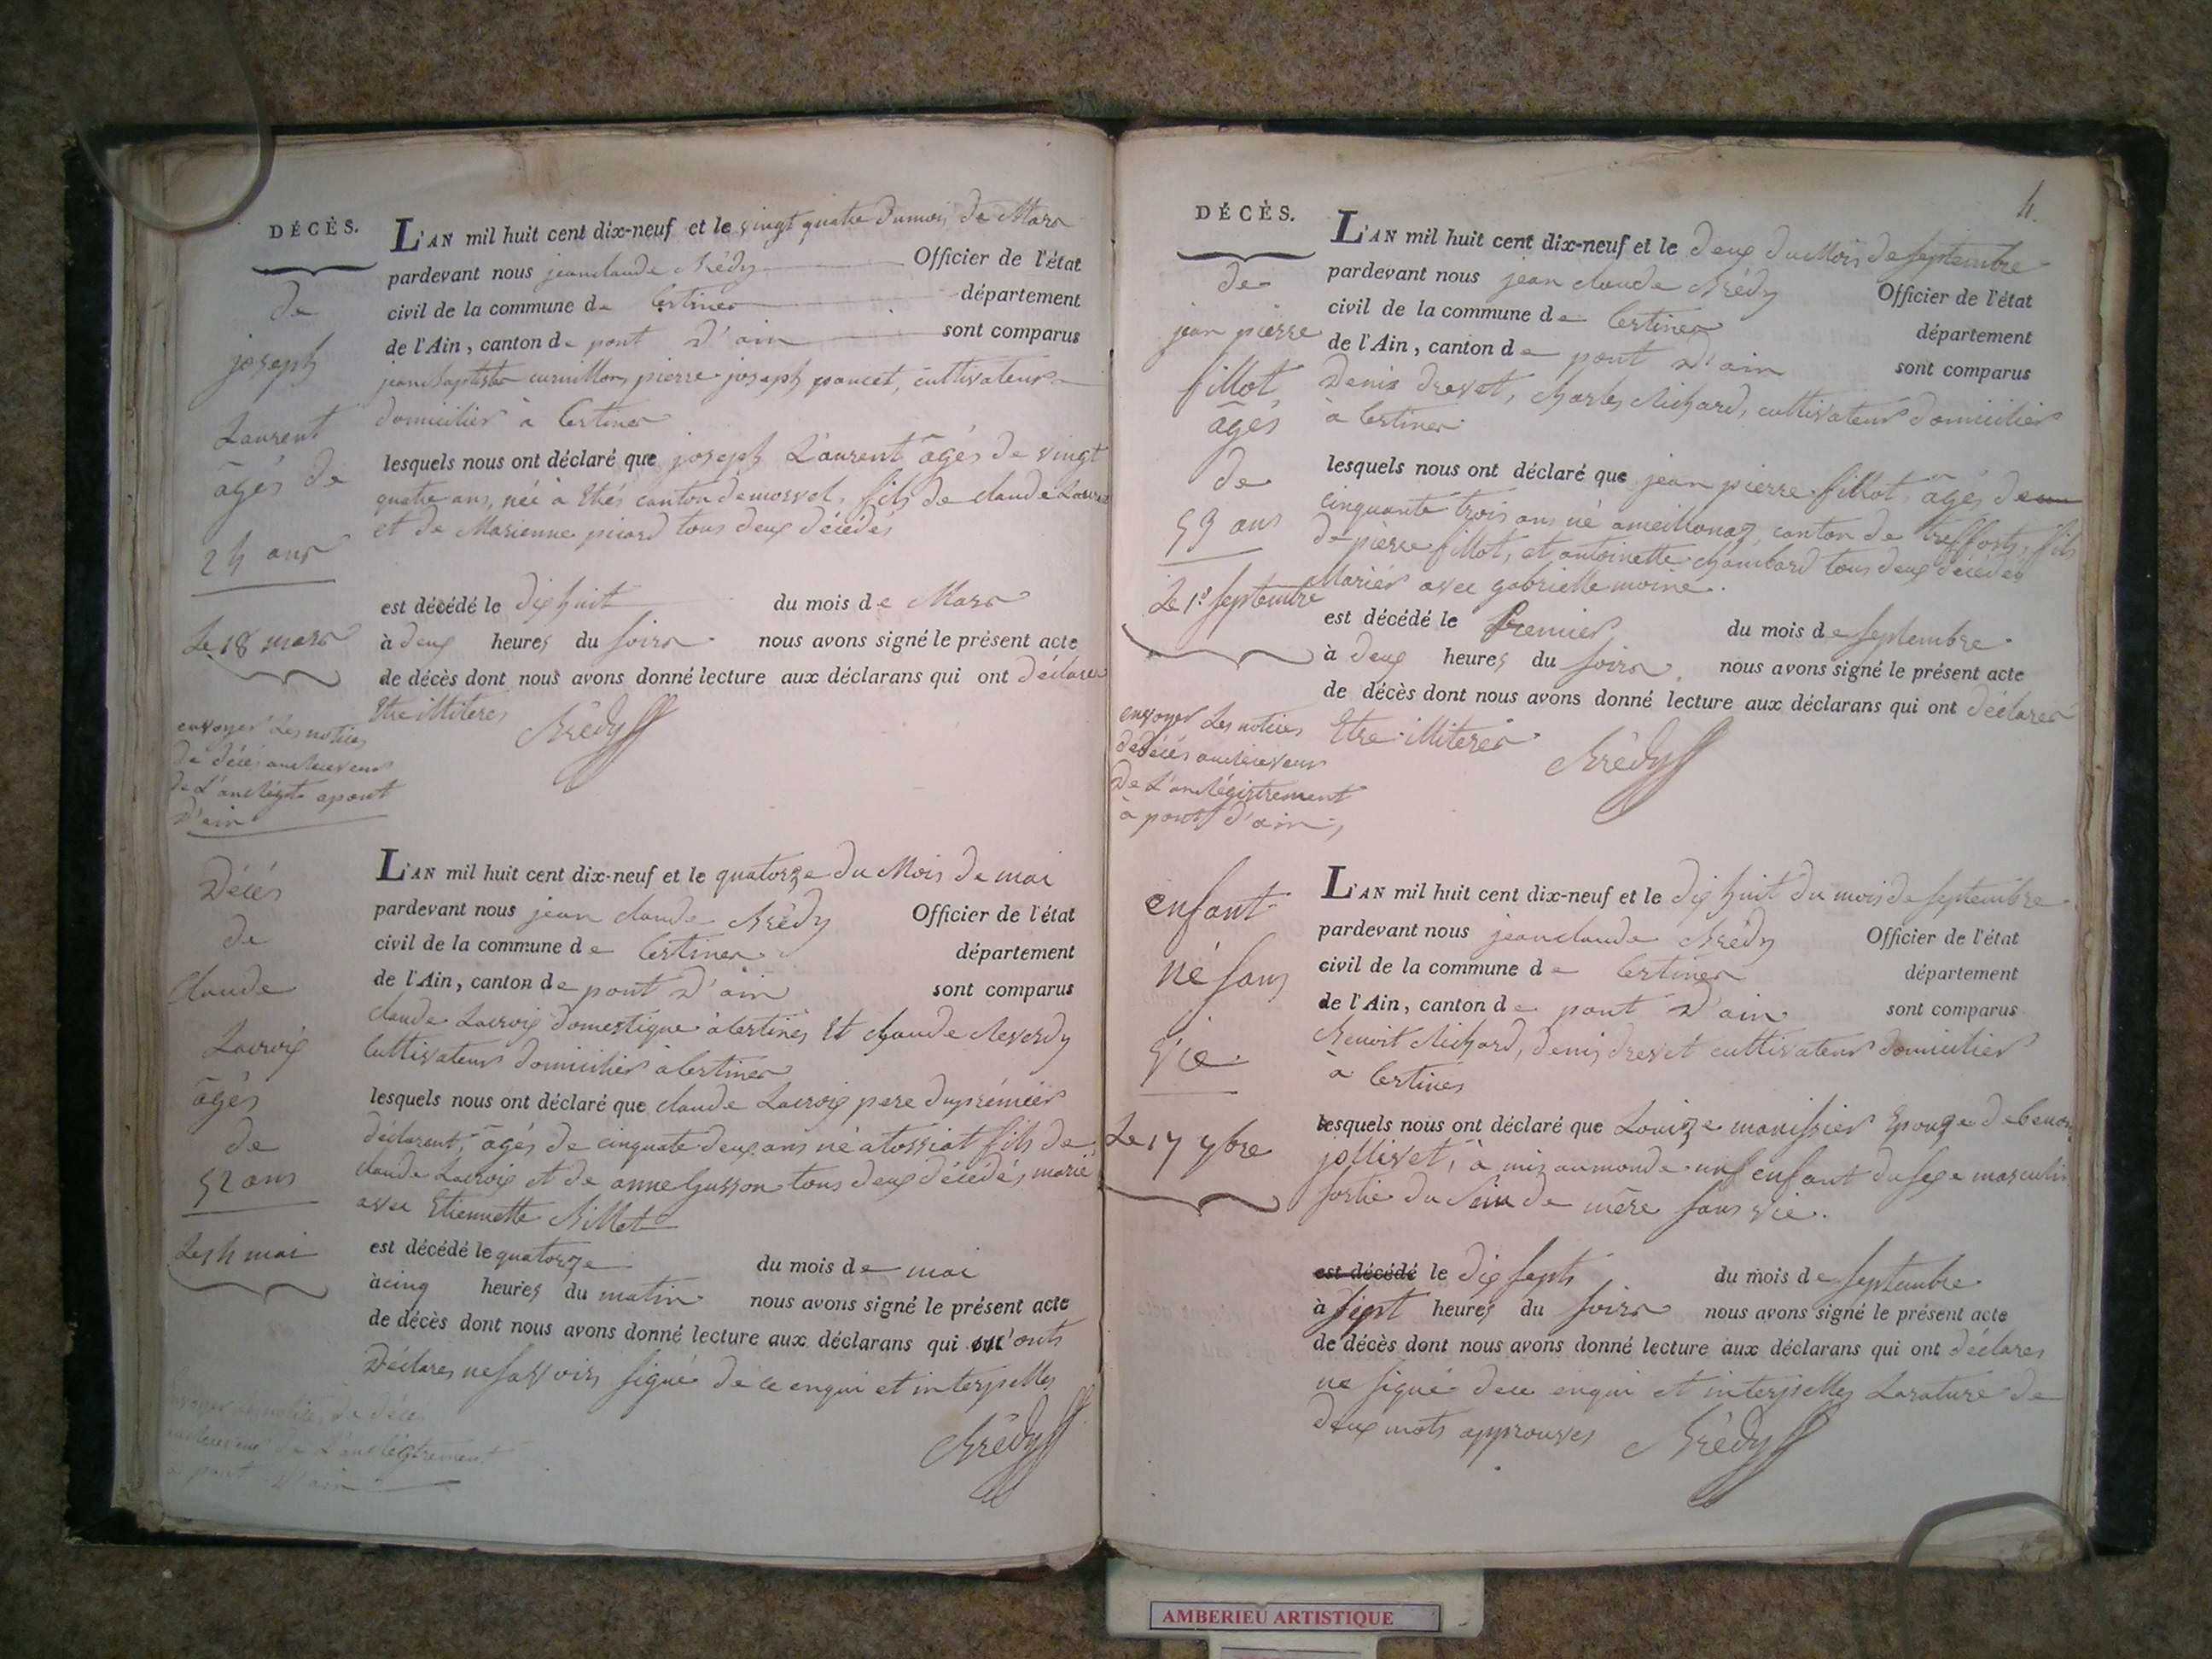 DÉCÈS.
de
joseph
Laurent
âgés de
24 ans
Le 18 mars
envoyer Les notices
de décés au
de L'
d'ain
L'AN mil huit cent dix-neuf et le vingt quatre du mois de Mars
pardevant nous jean claude Officier de l'état
civil de la commune de Certines département
de l'Ain, canton de pont d'ain sont comparus
jean baptiste pierre joseph poncet, cultivateurs
domicilier à Certines
lesquels nous ont déclaré que joseph Laurent âgés de vingt
quatre ans, née à canton de fils de claude
et de Marienne picard tous deux décédés
est décédé le dix huit du mois de Mars
à deux heures du soirs nous avons signé le présent acte
de décès dont nous avons donné lecture aux déclarans qui ont déclarer
Etre illiteres
Décés
de
Claude
Lacroix
âgés
de
52 ans
Le 14 mai
à pont d'ain
L'AN mil huit cent dix-neuf et le quatorze du Mois de mai
pardevant nous jean claude Officier de l'état
civil de la commune de Certines département
de l'Ain, canton de pont d'ain sont comparus
claude Lacroix domestique à Certines Et claude Reverdy
Cultivateur domicilier a Certines
lesquels nous ont déclaré que claude Lacroix pere du prémier
déclarent, âgés de cinquate deux ans né a tossiat fils de
claude Lacroix et de anne tous deux décédés, marié
avec Etiennette
est décédé le quatorze du mois de mai
à cinq heures du matin nous avons signé le présent acte
de décès dont nous avons donné lecture aux déclarans qui n'onts
déclares ne savoirs signé de ce enqui et interpelles
4
DÉCÈS.
de
jean pierre
fillot
âgés
de
53 ans
Le 1er septembre
envoyer Les notices
de décés au
De L'
à pont d'ain
L'AN mil huit cent dix-neuf et le deux du Mois de septembre
pardevant nous jean claude Officier de l'état
civil de la commune de Certines département
de l'Ain, canton de pont d'ain sont comparus
Denis drevet, charles Richard, cultivateur domicilier
à Certines
lesquels nous ont déclaré que jean pierre fillot, âgés de
cinquante trois ans né a meillonaz, canton de treffort, fils
de pierre fillot, et antoinette chambard tous deux décédés
Mariés avec gabrielle moine.
est décédé le Premier du mois de septembre
à deux heures du soirs nous avons signé le présent acte
de décès dont nous avons donné lecture aux déclarans qui ont déclarer
Etre illiteres
enfant
né sans
vie
Le 17 7bre
L'AN mil huit cent dix-neuf et le dix huit du mois de septembre
pardevant nous jean claude Officier de l'état
civil de la commune de Certines département
de l'Ain, canton de pont d'ain sont comparus
Benoit Richard, denis drevet cultivateur domicilier
à Certines
lesquels nous ont déclaré que Louize Epouze de
jollivet, à mis au monde un enfant du sexe masculin
sortie du sein de mère sans vie.
est décédé le dix sept du mois de septembre
à sept heures du soirs nous avons signé le présent acte
de décès dont nous avons donné lecture aux déclarans qui ont déclares
ne signé de ce enqui et interpelles La rature de
deux mots approuves
AMBERIEU ARTISTIQUE